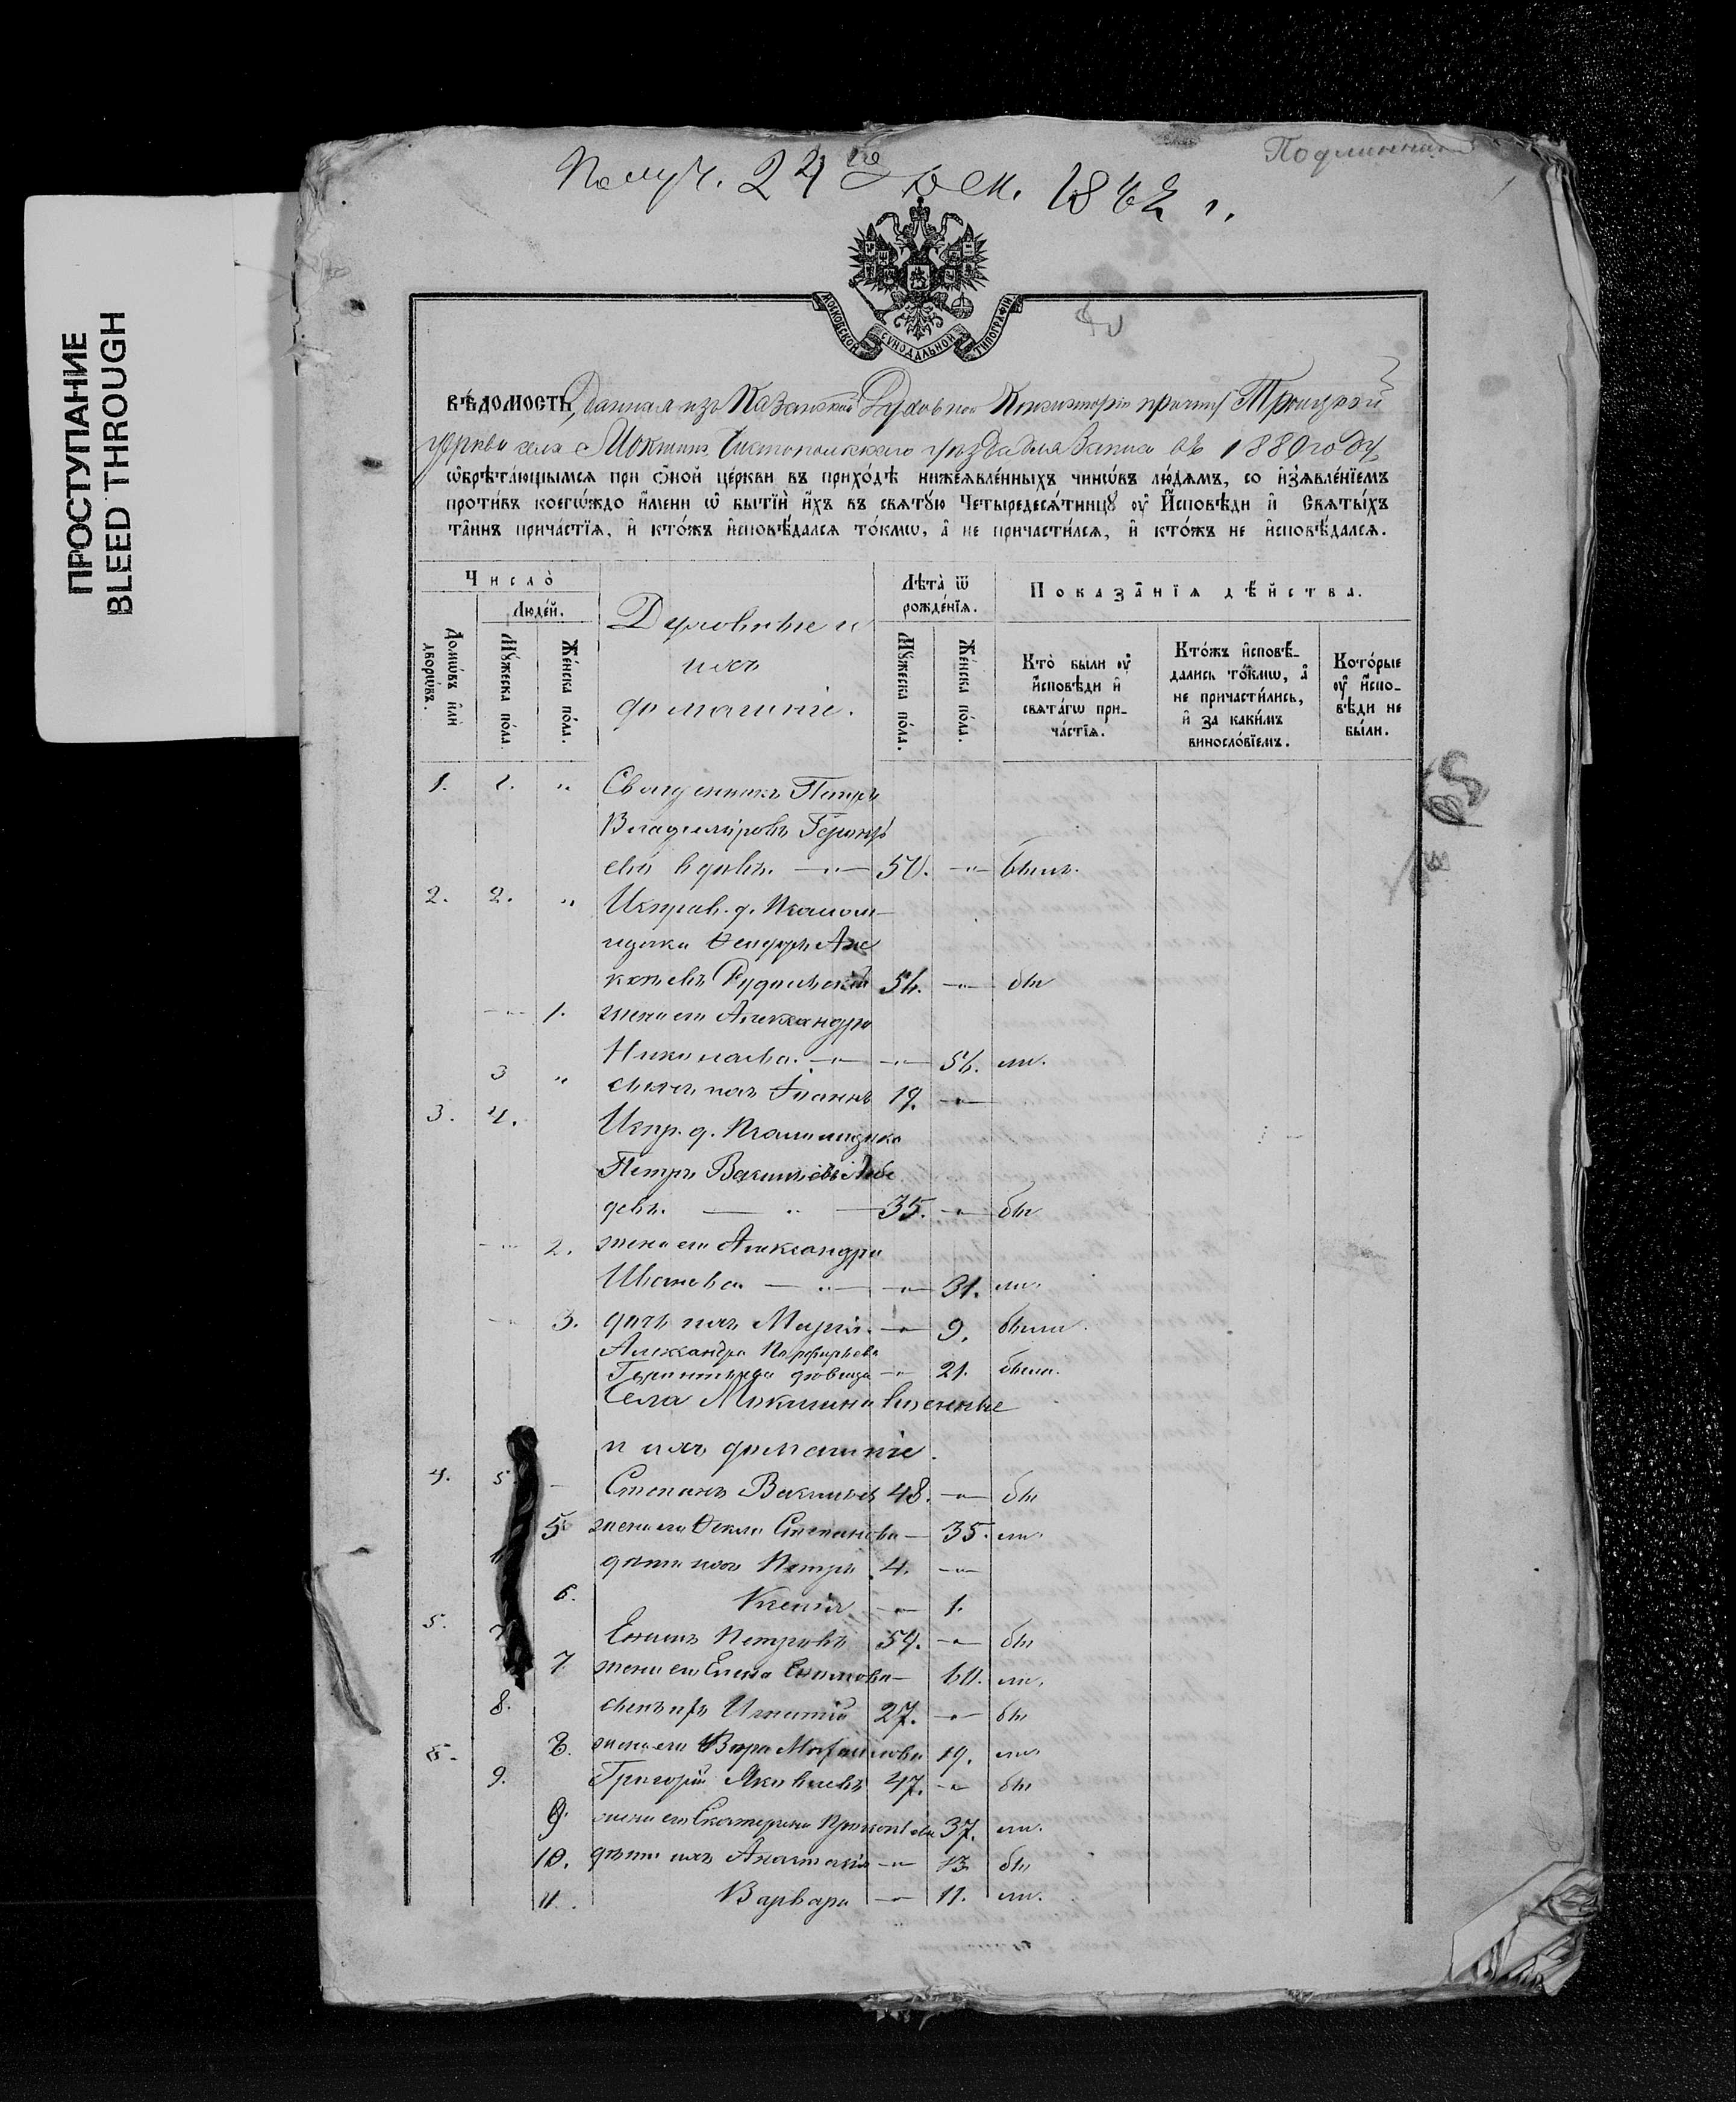 ПРОСТУПАНИЕ
BLEED THROUGH
Подлинник
Получ. 24го 1882 г.
МОСКОВСКОЙ СѴНОДАЛЬНОЙ ТИПОГРАФІИ
ВѢ́ДОМОСТЬ, данная изъ Казанской Духовной Консисторіи причту Троицкой
церкви села Мокшина Чистопольскаго уѣзда для записи въ 1880 году
ѡ҆брѣта́ющымсѧ при ѻ҆́ной це́ркви въ прихо́дѣ нижеѧвле́нныхъ чинѡ́въ лю́дѧмъ, со и҆з̾ѧвле́нїемъ
проти́въ коегѡ́ждо и҆́мени ѡ҆ бытїѝ и҆́хъ въ свѧту́ю Четыредесѧ́тницу ᲂу҆ И҆́сповѣди и҆ Свѧты́хъ
та̑инъ прича́стїѧ, и҆ кто́жъ и҆сповѣ́далсѧ то́кмѡ, а҆ не причасти́лсѧ, и҆ кто́жъ не и҆сповѣ́далсѧ.
Число̀
Люде́й.
Домѡ́въ и҆лѝ дворѡ́въ.
Му́жеска по́ла.
Же́нска по́ла.
Духовные и
ихъ
домашніе.
Лѣта̀ ѿ рожде́нїѧ.
Му́жеска по́ла.
Же́нска по́ла.
Показа̑нїѧ дѣ́йства.
Кто̀ бы́ли ᲂу҆ и҆́сповѣди и҆ свѧта́гѡ прича́стїѧ.
Кто́жъ и҆сповѣ́дались то́кмѡ, а҆ не причасти́лись, и҆ за каки́мъ виносло́вїемъ.
Кото́рые ᲂу҆ и҆́сповѣди не бы́ли.
1. 1. " Священникъ Петръ
Владиміровъ
вдовъ. — " — 50. — " — былъ.
2. 2. " Исправ. д. Псалом-
щика Ѳеодоръ Але
ксѣевъ 56. — " — бы
— " — 1. жена его Александра
Николаева. — " — — " — 56. ли.
3 " сынъ ихъ Іоаннъ 19. — " —
3. 4. Испр. д. Псаломщика
Петръ Васильевъ Лебе
девъ. — " — 35. — " — бы
— " — 2. жена его Александра
Иванова. — " — — " — 31. ли.
— " — 3. дочь ихъ Марія. — " — 9. была.
Александра Порфирьева
дѣвица — " — 21. была.
Села Мокшина военные
и ихъ домашніе.
4. 5 — Степанъ Васильев 48. — " — бы
5 жена его Ѳекла Степанова — 35. ли.
дѣти ихъ Петръ 4. — " —
6. Ксенія — " — 1.
5. 7 Ефимъ Петровъ 59. — " — бы
7 жена его Елена Ефимова — 60. ли.
8. сынъ ихъ Игнатій 27. — " — бы
8. жена его Вѣра Михаилова 19. ли
6. 9. Григорій Яковлевъ 47. — " — бы
9 жена его Екатерина Прокопьева 37. ли.
10. дѣти ихъ Анастасія — " — 13 бы
11. Варвара — " — 11. ли.